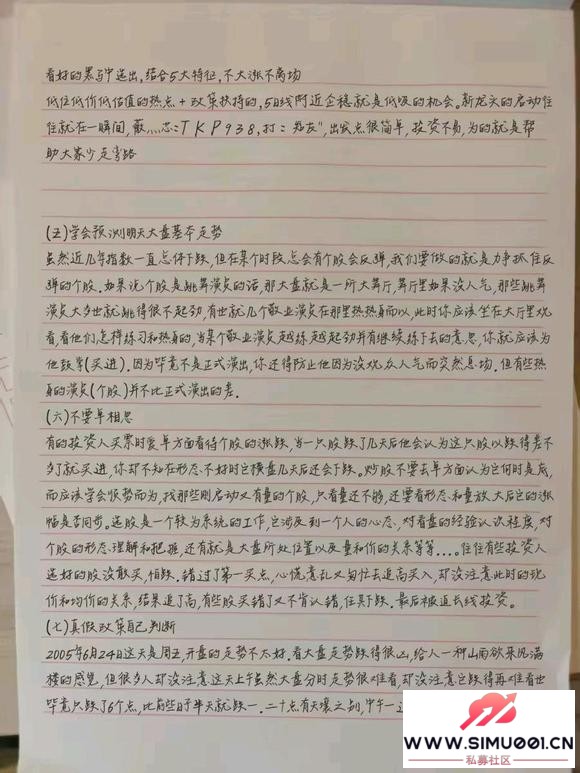 看好的票与中选出,结合5大特征,不大涨不离场
低位低价低估值的热点+政策扶持的,5日线附近企稳就是低吸的机会。新龙头的启动往
往就在一瞬间,薇灬芯:TKP938,打:"知友",出发点很简单,投资不易,为的就是帮
助大家少走弯路
(五)学会预测明天大盘基本走势
虽然近几年指数一直总体下跌,但在某个时段总会有个股会反弹,我们要做的就是力争抓住反
弹的个股.如果说个股是跳舞演员的话,那大盘就是一所大舞厅,舞厅里如果没人气,那些跳舞
演员大多也就跳得很不起劲,有也就几个敬业演员在那里热热身而以,此时你应该坐在大厅里观
看,看他们怎样练习和热身的,当某个敬业演员越练越起劲并有继续练下去的意思,你就应该为
他鼓掌(买进).因为毕竟不是正式演出,你还得防止他因为没观众人气而突然息场.但有些热
身的演员(个股)并不比正式演出的差.
(六)不要单相思
有的投资人买票时爱单方面看待个股的涨跌,当一只股跌了几天后他会认为这只股以跌得差不
多了就买进,你却不知在形态不好时它横盘几天后还会下跌。炒股不要去单方面认为它何时是底,
而应该学会顺势而为,找那些刚启动又有量的个股,只看量还不够,还要看形态和量放大后它的涨
幅是否同步。选股是一个较为系统的工作,它涉及到一个人的心态,对看盘的经验认识程度,对
个股的形态理解和把握,还有就是大盘所处位置以及量和价的关系等等....。往往有些投资人
选好的股没敢买,怕跌.错过了第一买点,心慌意乱又匆忙去追高买入,却没注意此时的现
价和均价的关系,结果追了高,有些股买错了又不肯认错,任其下跌.最后被迫长线投资。
(七)真假政策自己判断
2005年6月24日这天是周五,开盘的走势不太好.看大盘走势跌得很凶,给人一种山雨欲来风满
楼的感觉,但很多人却没注意这天上午虽然大盘分时走势很难看,却没注意它跌得再难看也
毕竟只跌了6个点,比前些日子半天就跌一.二十点有天壤之别,中午一
WWW.SIMU001.CN
私募社区